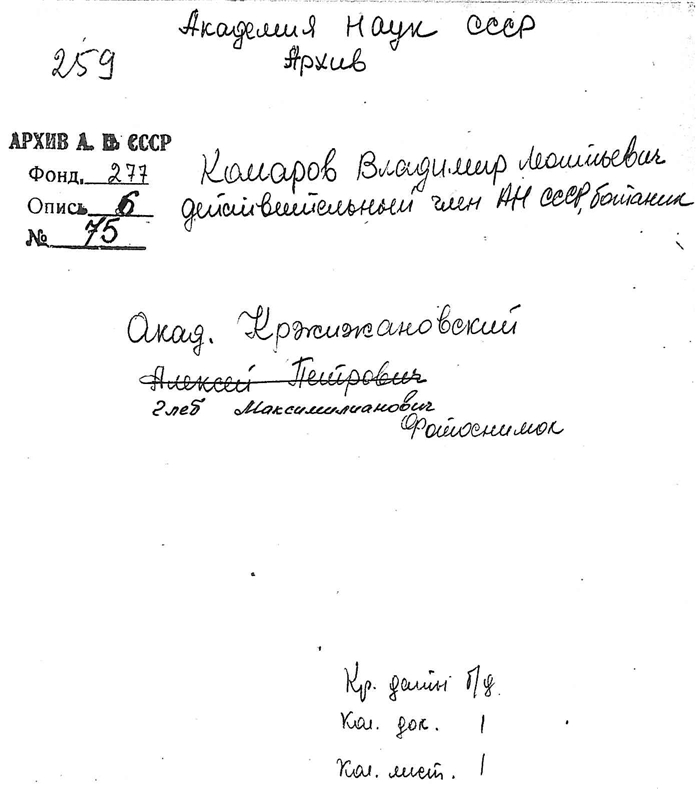 Академия Наук СССР
259
Архив
АРХИВ А. Н. СССР
Фонд. 277
Опись 6
№ 75
Комаров Владимир Леонтьевич
действительный член АН СССР, ботаник
Акад. Кржижановский
Алексей Петрович
Глеб Максимилианович
Фотоснимок
Кр. даты б/д.
Кол. док. 1
Кол. лист. 1